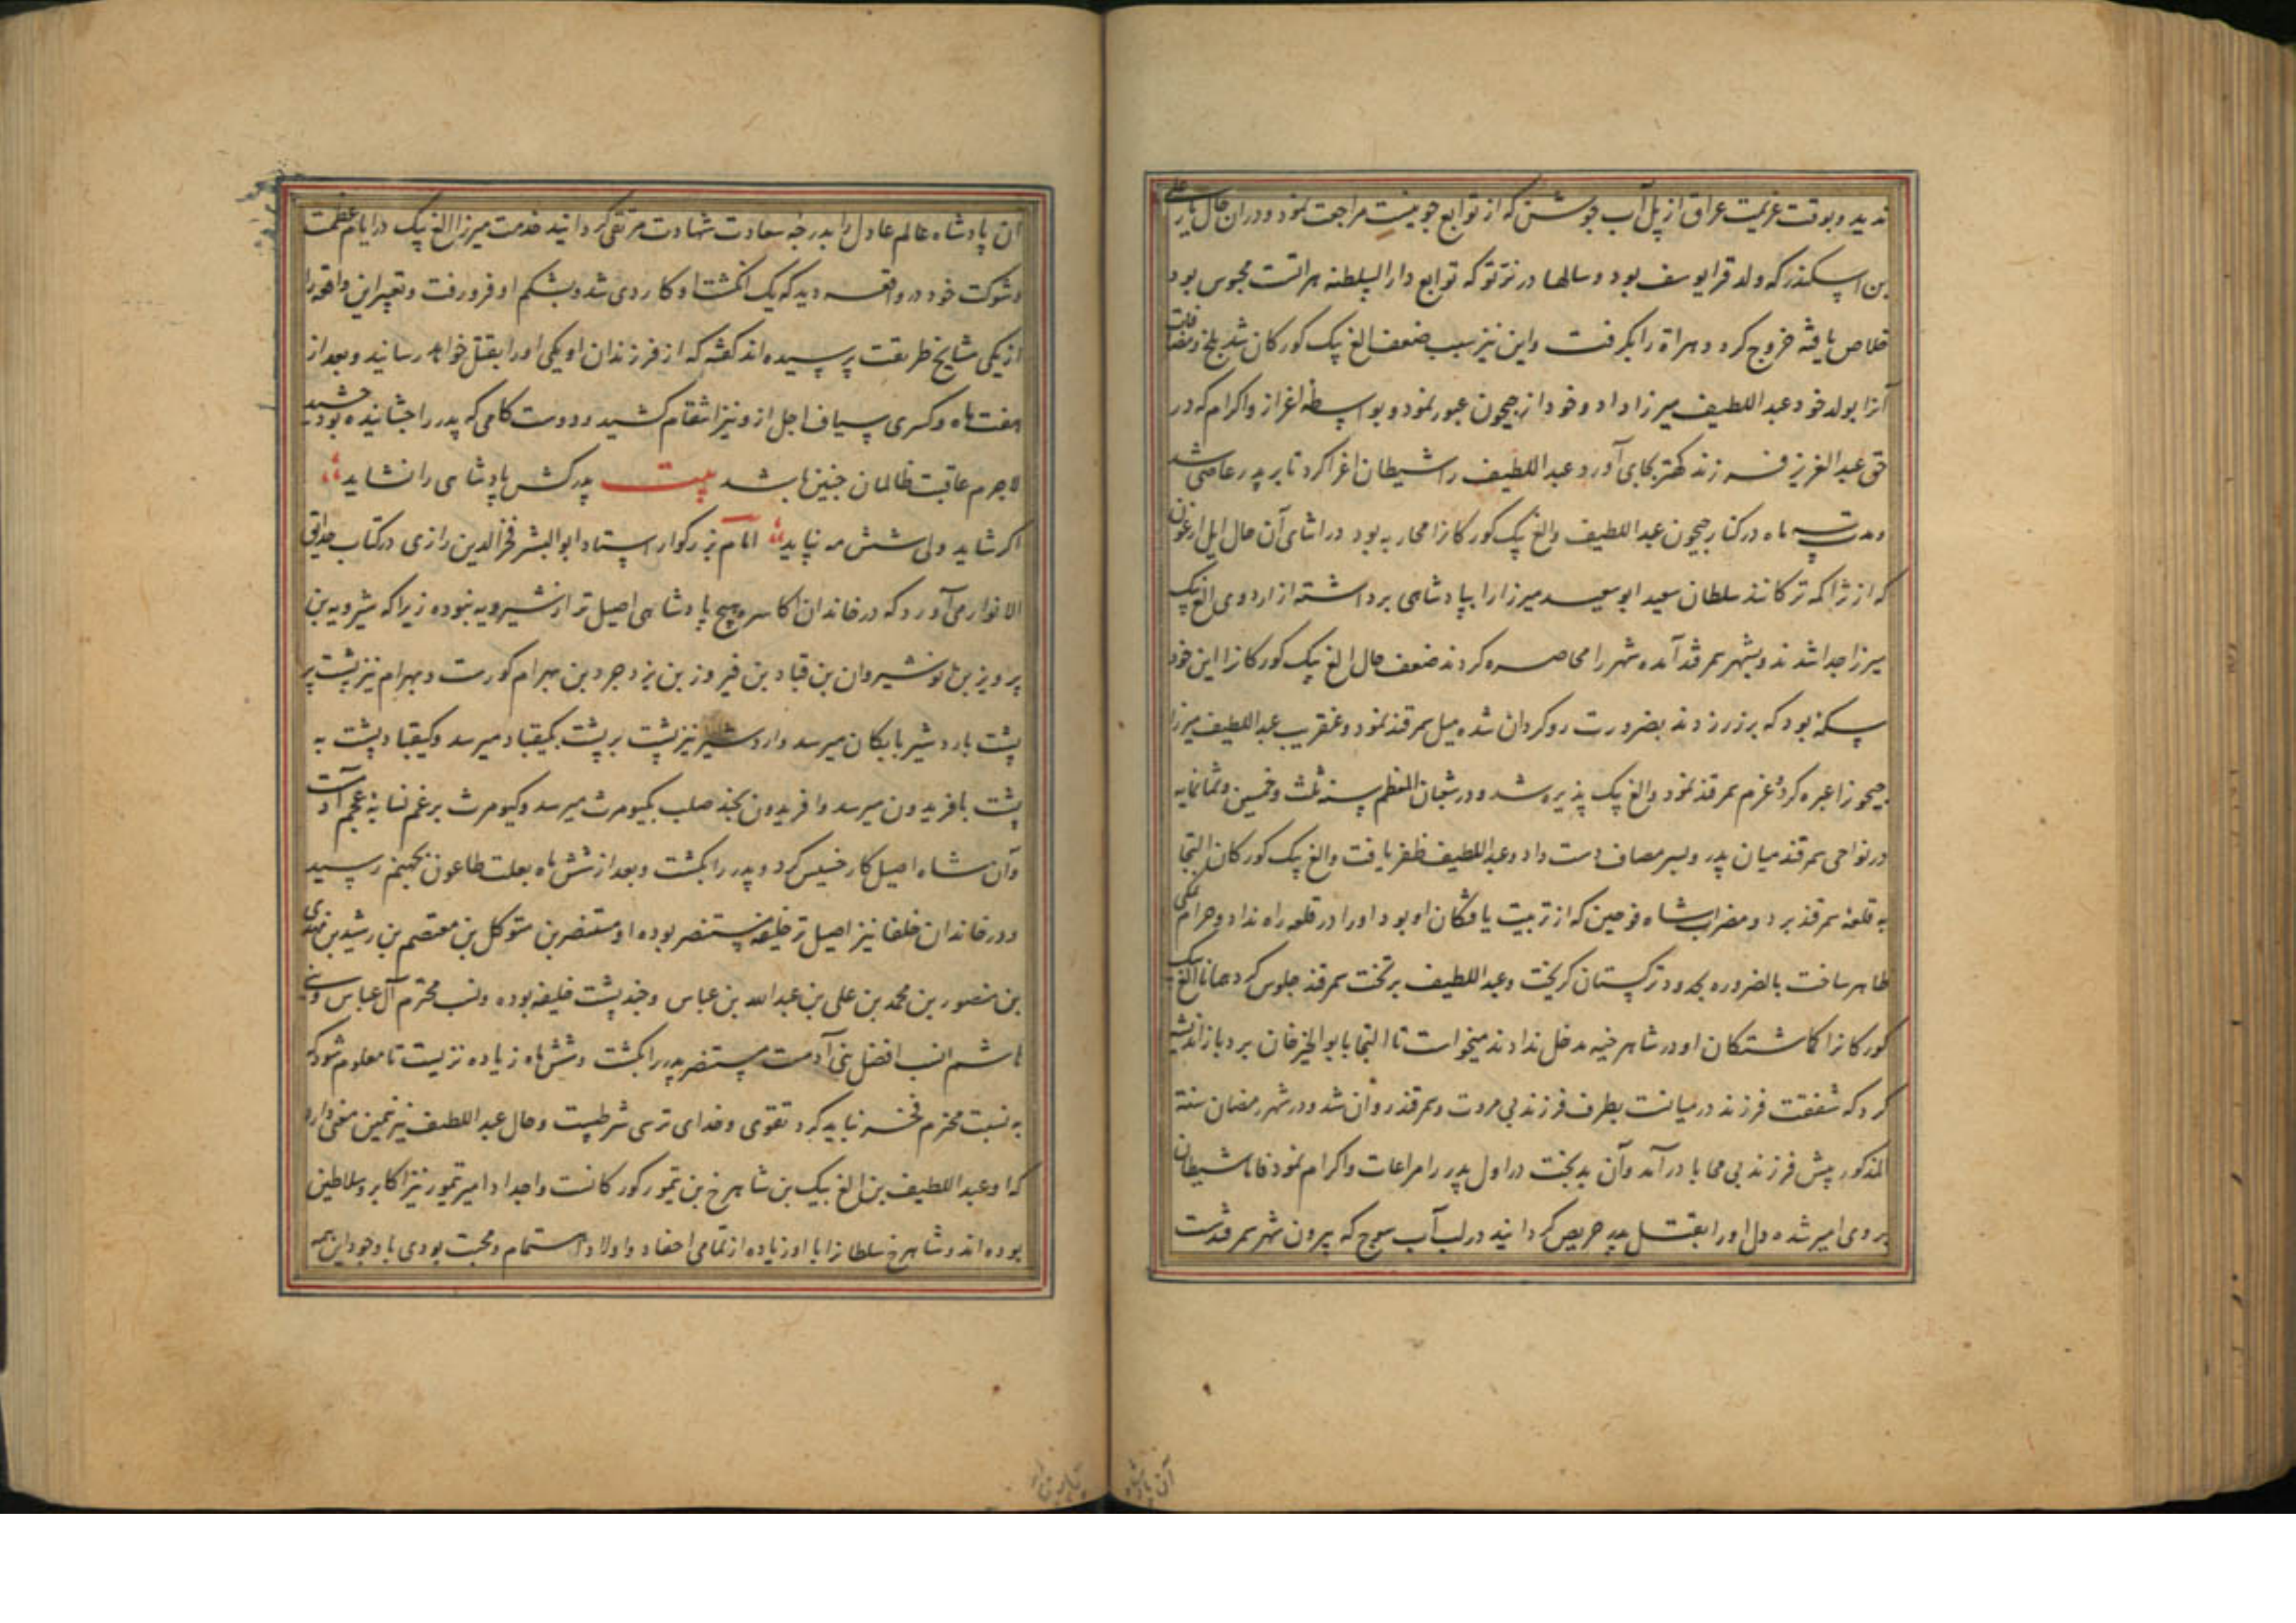 ندید و بوقت عزیمت عراق از پل آب جوشن که از توابع جوینست مراجعت نمود و دران حال یار علی
بن اسکندر که ولد قرا یوسف بود و سالها در نرتو که توابع دار السلطنه هراتست محبوس بود
خلاص یافته خروج کرد و هراة را بگرفت و این نیز سبب ضعف الغ بیک کورکان شد بلخ و مضافات
آنرا بولد خود عبد اللطیف میرزا داد و خود از جیحون عبور نمود و بواسطه اعزاز و اکرام که در
حق عبد العزیز فرزند کهتر بجای آورد عبد اللطیف را شیطان اغرا کرد تا بر پدر عاصی شد
و مدت سه ماه در کنار جیحون عبد اللطیف و الغ بیک کورکانرا محاربه بود در اثنای آن حال ایل ارغون
که از تراکه ترکانند سلطان سعید ابو سعید میرزا را بپادشاهی برداشته از اردوی الغ بیک
میرزا جدا شدند و بشهر سمرقند آمده شهر را محاصره کردند ضعف حال الغ بیک کورکانرا این خود
سکه بود که بر زر زدند بضرورت روکردان شده میل سمرقند نمود و عنقریب عبد اللطیف میرزا
جیحونرا عبره کرده عزم سمرقند نمود و الغ بیک پذیره شد و در شعبان المعظم سنه ثلث و خمسین و ثمانمایه
در نواحی سمرقند میان پدر و پسر مصاف دست داد و عبد اللطیف ظفر یافت و الغ بیک کورکان التجا
به قلعه سمرقند برد و مضراب شاه قوجین که از تربیت یافتکان او بود او را در قلعه راه نداد و حرام نمکی
ظاهر ساخت بالضروره بحدود ترکستان کریخت و عبد اللطیف بر تخت سمرقند جلوس کرد همانا الغ بیک
کورکانرا کماشتکان او در شاهرخیه مدخل ندادند میخواست تا التجا بابو الخیر خان برد باز اندیشه
کرد که شفقت فرزند در میانست بطرف فرزند بی مروت و سمرقند روان شد و در شهر رمضان سنة
المذکور پیش فرزند بی محابا درآمد و آن بدبخت در اول پدر را مراعات و اکرام نمود فاما شیطان
بر وی امیر شده دل او را بقتل پدر حریص کردانید در لب آب سوج که بیرون شهر سمرقندست
آن پادشاه
آن پادشاه عالم عادل را بدرجه سعادت شهادت مرتقی کردانید خدمت میرزا الغ بیک در ایام عظمت
و شوکت خود در واقعه دید که یک انکشت او کاردی شد و بشکم او فرو رفت و تعبیر این واقعه را
از یکی مشایخ طریقت پرسیده اند کفته که از فرزندان او یکی او را بقتل خواهد رسانید و بعد از
هفت ماه و کسری سیاف اجل ازو نیز انتقام کشید و دوست کامی که پدر را چشانیده بود چشید
لاجرم عاقبت ظالمان چنین باشد بیت پدر کش پادشاهی را نشاید
اکر شاید ولی شش مه نپاید امام بزرکوار استاد ابو البشر فخر الدین رازی در کتاب حدایق
الانوار می آورد که در خاندان اکاسره هیچ پادشاهی اصیل تر از شیرویه نبوده زیرا که شیرویه بن
پرویز بن نوشیروان بن قباد بن فیروز بن یزدجرد بن بهرام کورست و بهرام نیز پشت بر
پشت باردشیر بابکان میرسد و اردشیر نیز پشت بر پشت بکیقباد میرسد و کیقباد پشت به
پشت بافریدون میرسد و افریدون بچند صلب بکیومرث میرسد و کیومرث برغم نسابه عجم آدمست
و آن شاه اصیل کار خسیس کرد و پدر را بکشت و بعد از شش ماه بعلت طاعون بجهنم رسید
و در خاندان خلفا نیز اصیل تر خلیفه مستنصر بوده او مستنصر بن متوکل بن معتصم بن رشید بن مهدی
بن منصور بن محمد بن علی بن عبد الله بن عباس و چند پشت خلیفه بوده و نسب محترم آل عباس و بنی
هاشم انسب افضل بنی آدمست مستنصر پدر را بکشت و شش ماه زیاده نزیست تا معلوم شود که
به نسبت محترم فخر نباید کرد تقوی و خدای ترسی شرطیست و حال عبد اللطیف نیز همین معنی دارد
که او عبد اللطیف بن الغ بیک بن شاهرخ بن تیمور کورکانست و اجداد امیر تیمور نیز اکابر و سلاطین
بوده اند و شاهرخ سلطانرا با او زیاده از تمامی احفاد و اولاد اهتمام و محبت بودی با وجود این همه